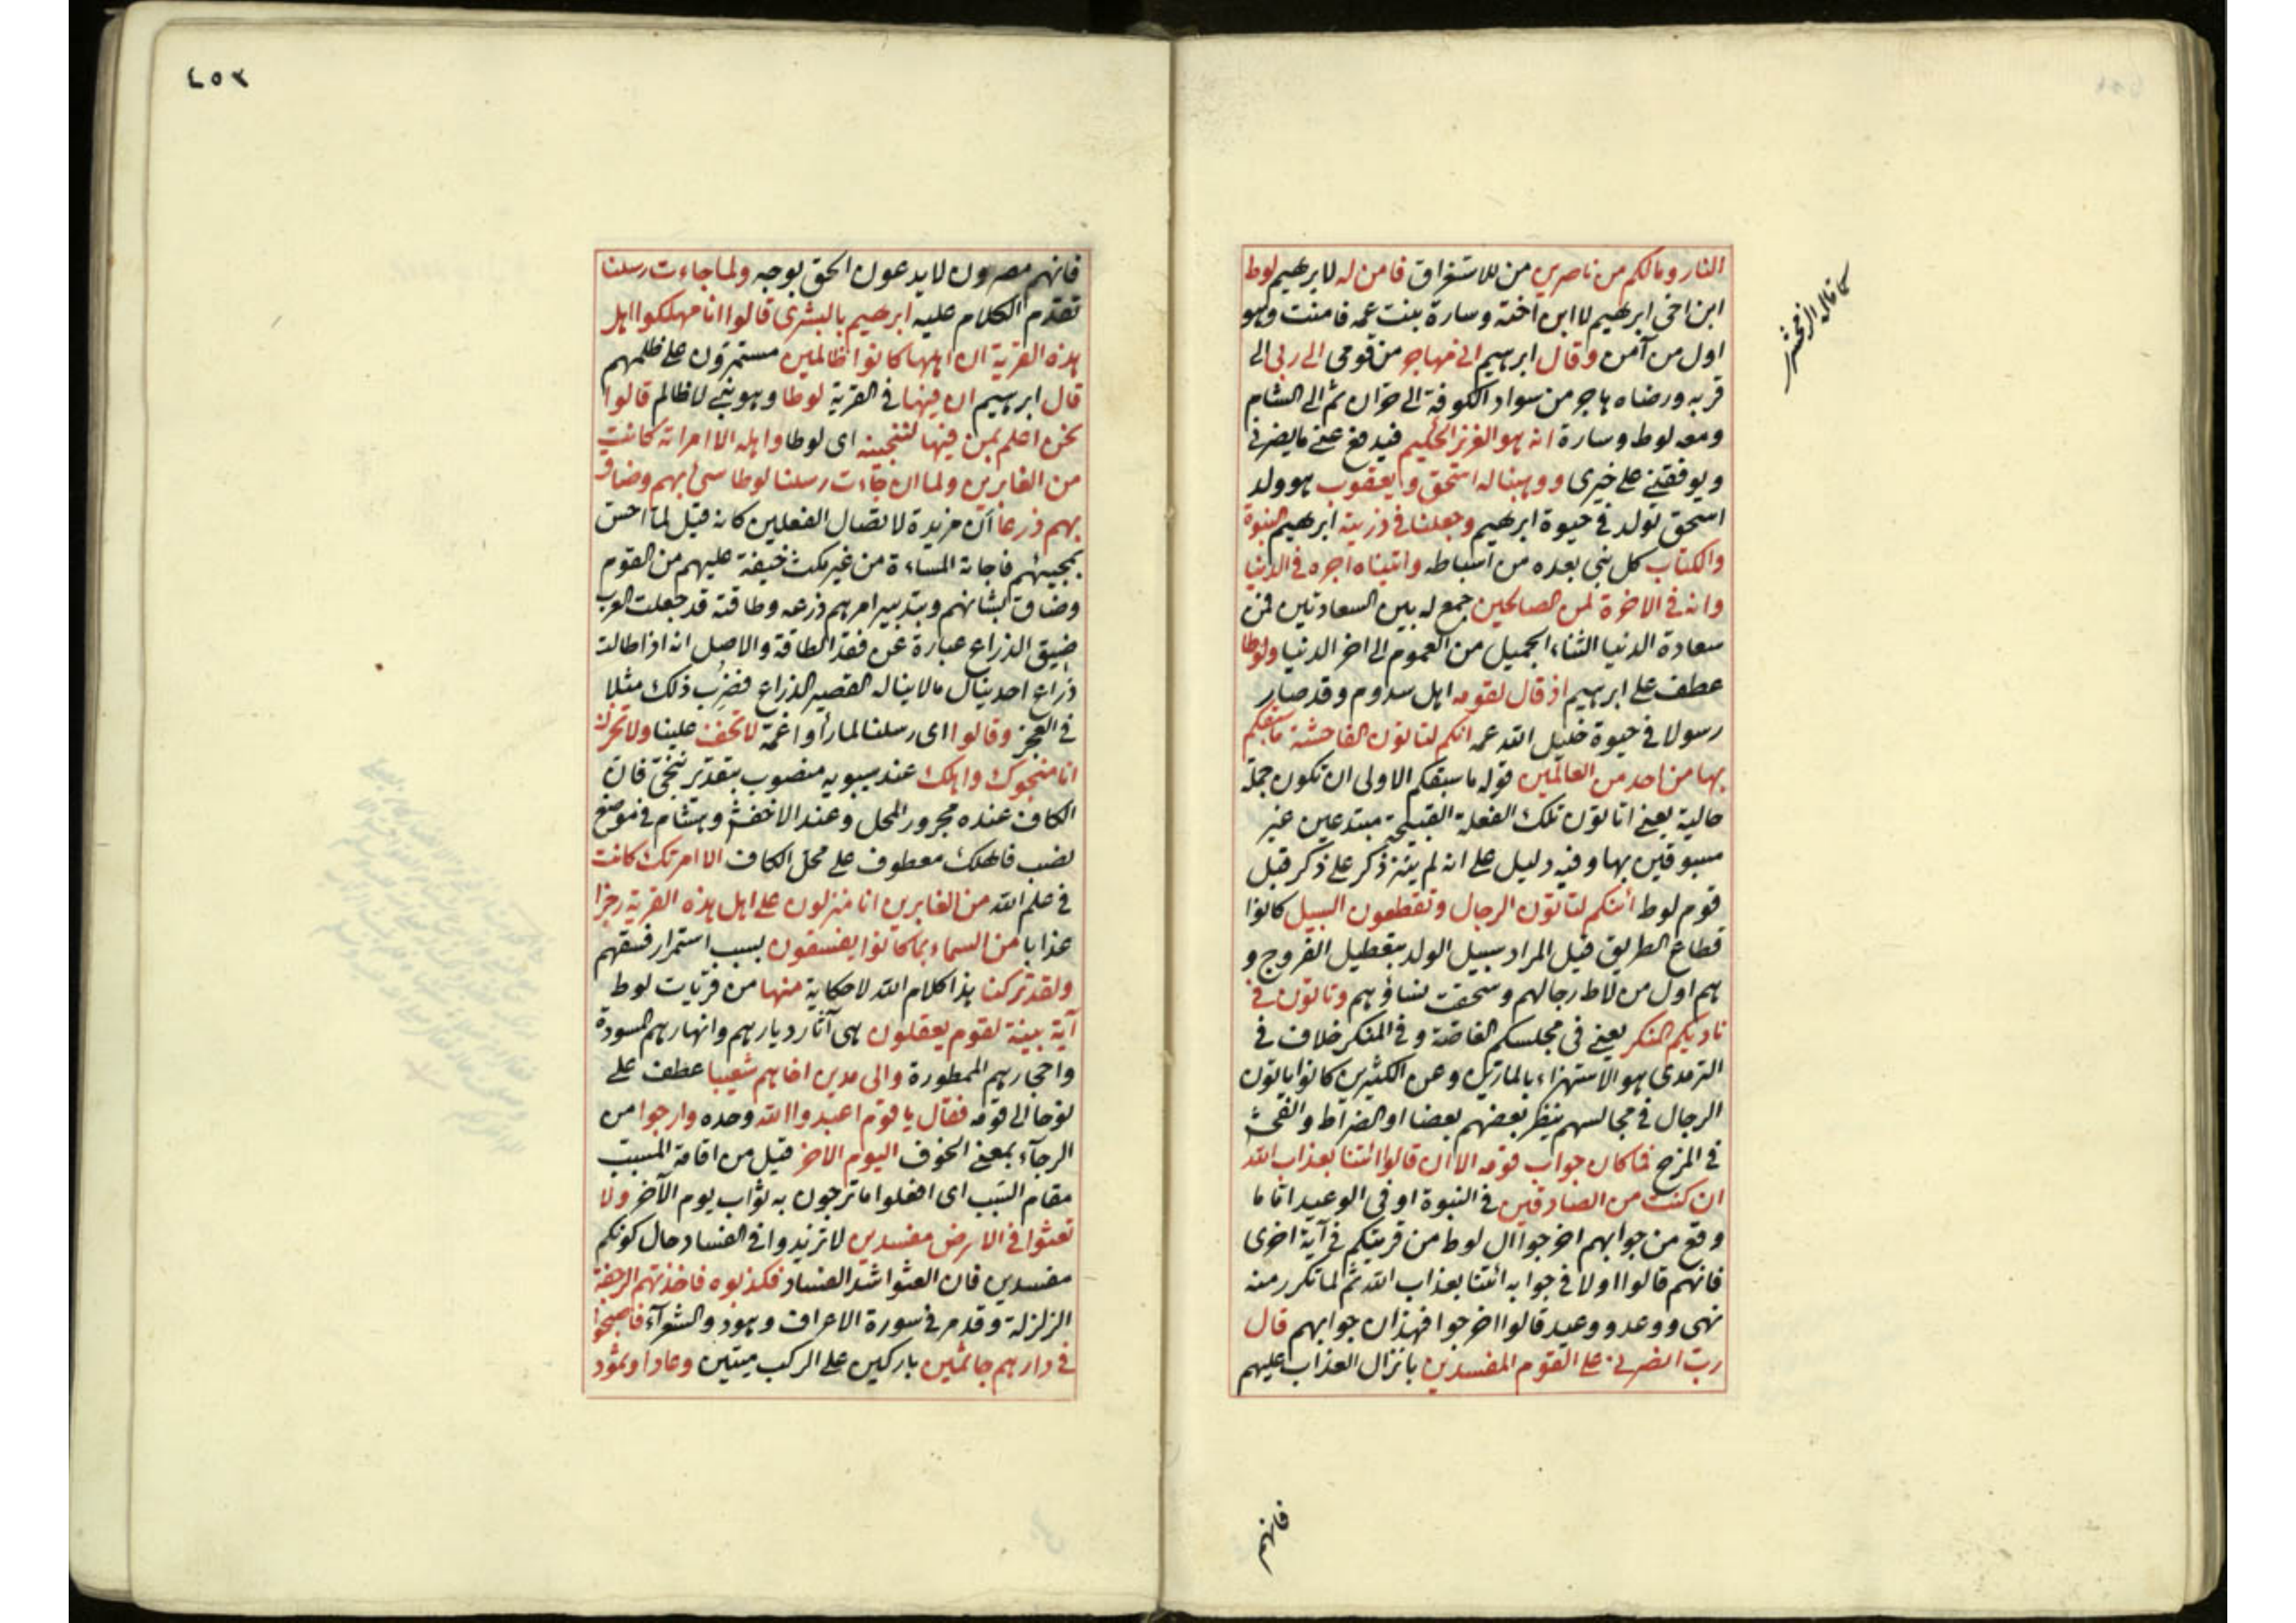 النار ومالكم من ناصرين من للاستغراق فامن له لابرهيم لوط
ابن اخى ابرهيم لا ابن اخته وسارة بنت عمه فامنت وهو
اول من آمن وقال ابرهيم انى مهاجر من قومى الى ربى الى
قربه ورضاه هاجر من سواد الكوفة الى حران ثم الى الشام
ومعه لوط وسارة انه هو العزيز الحكيم فيدفع عنى ما يضرنى
ويوفقنى على خيرى ووهبنا له اسحق ويعقوب هو ولد
اسحق تولد فى حيوة ابرهيم وجعلنا فى ذريته ابرهيم النبوة
والكتاب كل نبى بعده من اسباطه واتيناه اجره فى الدنيا
وانه فى الاخرة لمن الصالحين جمع له بين السعادتين فمن
سعادة الدنيا الثناء الجميل من العموم الى اخر الدنيا ولوطا
عطف على ابرهيم اذ قال لقومه اهل سدوم وقد صار
رسولا فى حيوة خليل الله عمه انكم لتاتون الفاحشة ما سبقكم
بها من احد من العالمين قوله ما سبقكم الاولى ان تكون جملة
حالية يعنى اتاتون تلك الفعلة القبيحة مبتدعين غير
مسبوقين بها وفيه دليل على انه لم ينز ذكر على ذكر قبل
قوم لوط أئنكم لتاتون الرجال وتقطعون السبيل كانوا
قطاع الطريق قيل المراد سبيل الولد بتعطيل الفروج و
هم اول من لاط رجالهم وسحقت نساؤهم وتاتون فى
ناديكم المنكر يعنى فى مجلسكم الغاصة وفى المنكر خلاف فى
الترمذى هو الاستهزاء بالمارين وعن الكثيرين كانوا ياتون
الرجال فى مجالسهم ينظر بعضهم بعضا او الضراط والفحش
فى المزح فما كان جواب قومه الا ان قالوا ائتنا بعذاب الله
ان كنت من الصادقين فى النبوة او فى الوعيد اما ما
وقع من جوابهم اخرجوا ال لوط من قريتكم فى آية اخرى
فانهم قالوا اولا فى جوابه ائتنا بعذاب الله ثم لما تكرر منه
نهى ووعد ووعيد قالوا اخرجوا فهذان جوابهم قال
رب انصرنى على القوم المفسدين بانزال العذاب عليهم
كما قاله الزمخشرى
فانهم
٤٥٣
فانهم مصرون لا يدعون الحق بوجه ولما جاءت رسلنا
تقدم الكلام عليه ابرهيم بالبشرى قالوا انا مهلكوا اهل
هذه القرية ان اهلها كانوا ظالمين مستمرون على ظلمهم
قال ابرهيم ان فيها فى القرية لوطا وهو نبى لا ظالم قالوا
نحن اعلم بمن فيها لننجينه اى لوطا واهله الا امراته كانت
من الغابرين ولما ان جاءت رسلنا لوطا سئ بهم وضاق
بهم ذرعا ان مزيدة لاتصال الفعلين كانه قيل لما احس
بمجيئهم فاجاته المساءة من غير مكث خيفة عليهم من القوم
وضاق بشانهم وبتدبير امرهم ذرعه وطاقته قد جعلت العرب
ضيق الذراع عبارة عن فقد الطاقة والاصل انه اذا طالت
ذراع احد ينال ما لا يناله القصير الذراع فضرب ذلك مثلا
فى العجز وقالوا اى رسلنا لما رأوا غمه لا تخف علينا ولا تحزن
انا منجوك واهلك عند سيبويه منصوب بتقدير ننجى فان
الكاف عنده مجرور المحل وعند الاخفش وهشام فى موضع
نصب فاهلك معطوف على محل الكاف الا امرتك كانت
فى علم الله من الغابرين انا منزلون على اهل هذه القرية رجزا
عذابا من السماء بما كانوا يفسقون بسبب استمرار فسقهم
ولقد تركنا هذا كلام الله لا حكاية منها من قريات لوط
آية بينة لقوم يعقلون هى آثار ديارهم وانهارهم المسودة
واحجارهم الممطورة والى مدين اخاهم شعيبا عطف على
نوحا الى قومه فقال يا قوم اعبدوا الله وحده وارجوا من
الرجآء بمعنى الخوف اليوم الاخر قيل من اقامة المسبب
مقام السبب اى افعلوا ما ترجون به ثواب يوم الآخر ولا
تعثوا فى الارض مفسدين لا تزيدوا فى الفساد حال كونكم
مفسدين فان العثو اشد الفساد فكذبوه فاخذتهم الرجفة
الزلزلة وقد مر فى سورة الاعراف وهود والشعرآء فاصبحوا
فى دارهم جاثمين باركين على الركب ميتين وعادا وثمود